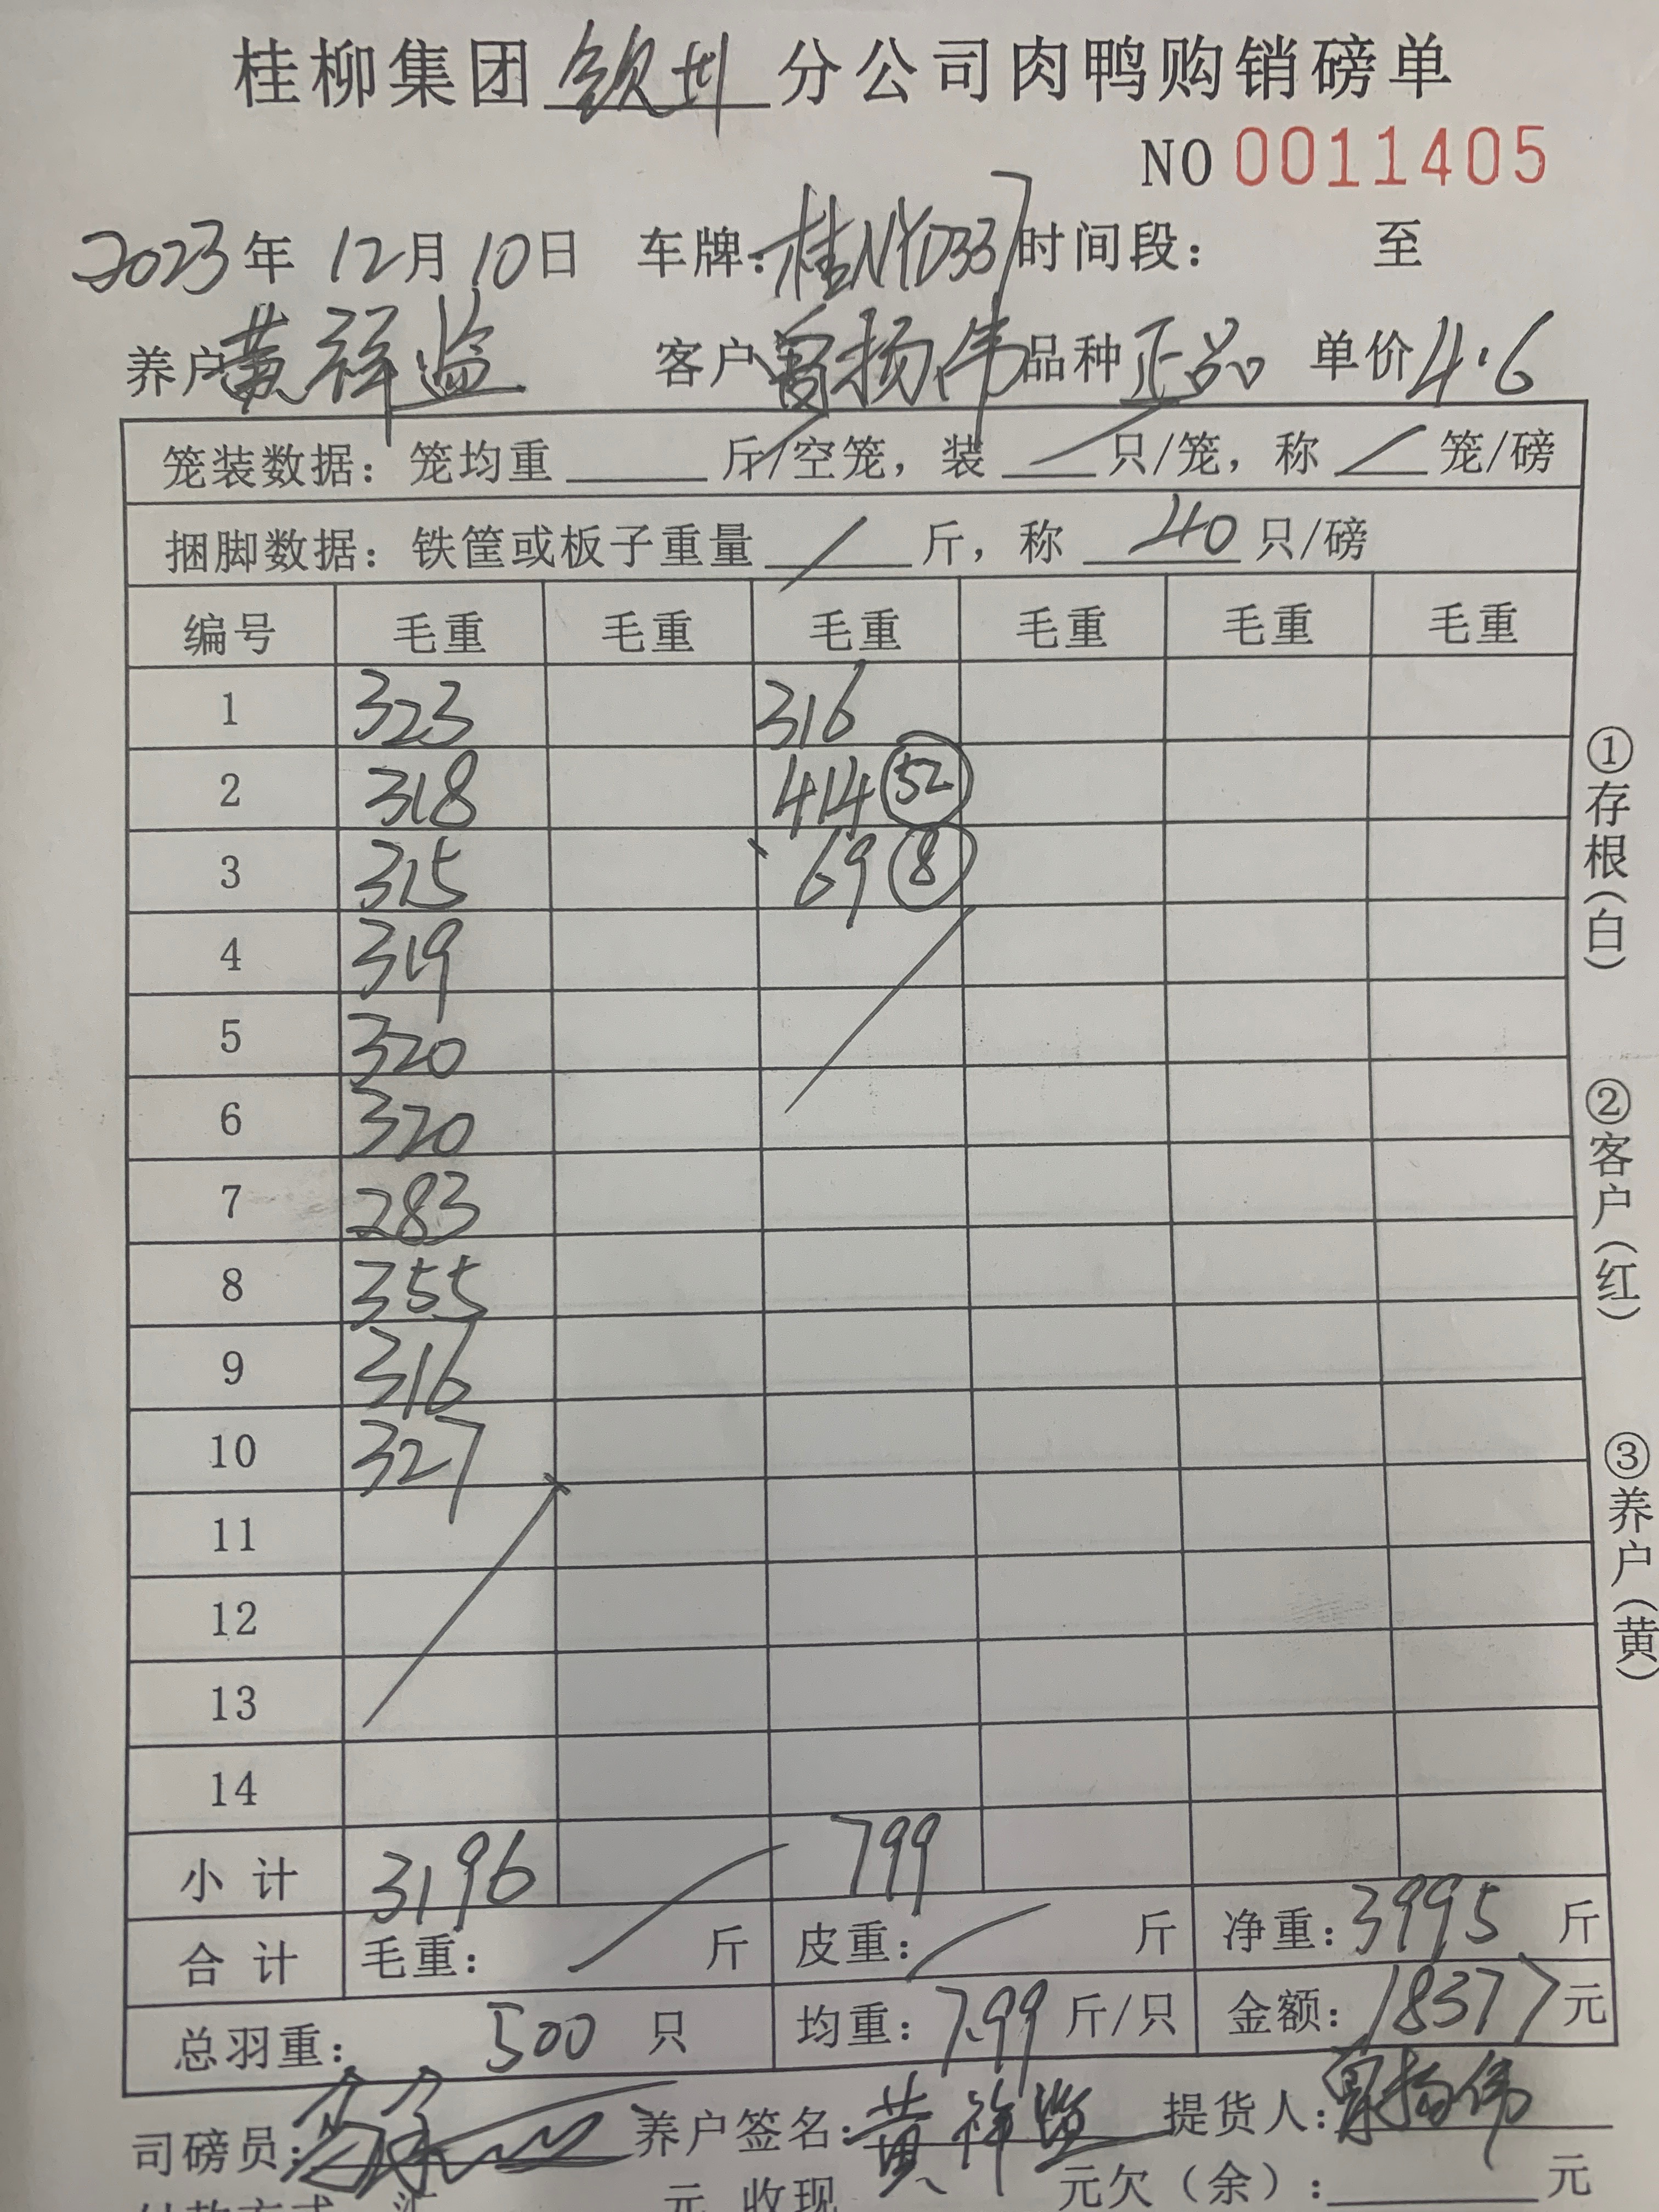 桂柳集团钦州分公司肉鸭购销磅单
NO 0011405
2023年 12月 10日 车牌:桂NYD337 时间段: 至
养户 黄祥益 客户 曾扬伟 品种 正品 单价 4.6
笼装数据: 笼均重 斤/空笼, 装 只/笼, 称 笼/磅
捆脚数据: 铁筐或板子重量 斤, 称 40 只/磅
编号 毛重 毛重 毛重 毛重 毛重 毛重
1 323 316
2 318 414 52
3 315 69 8
4 319
5 320
6 320
7 283
8 355
9 316
10 327
11
12
13
14
小计 3196 799
合计 毛重: 斤 皮重: 斤 净重: 3995 斤
总羽重: 500 只 均重: 7.99 斤/只 金额: 18377元
司磅员: 养户签名: 黄祥益 提货人: 曾扬伟
付款方式 汇 元 收现 元欠(余): 元
①存根(白)
②客户(红)
③养户(黄)